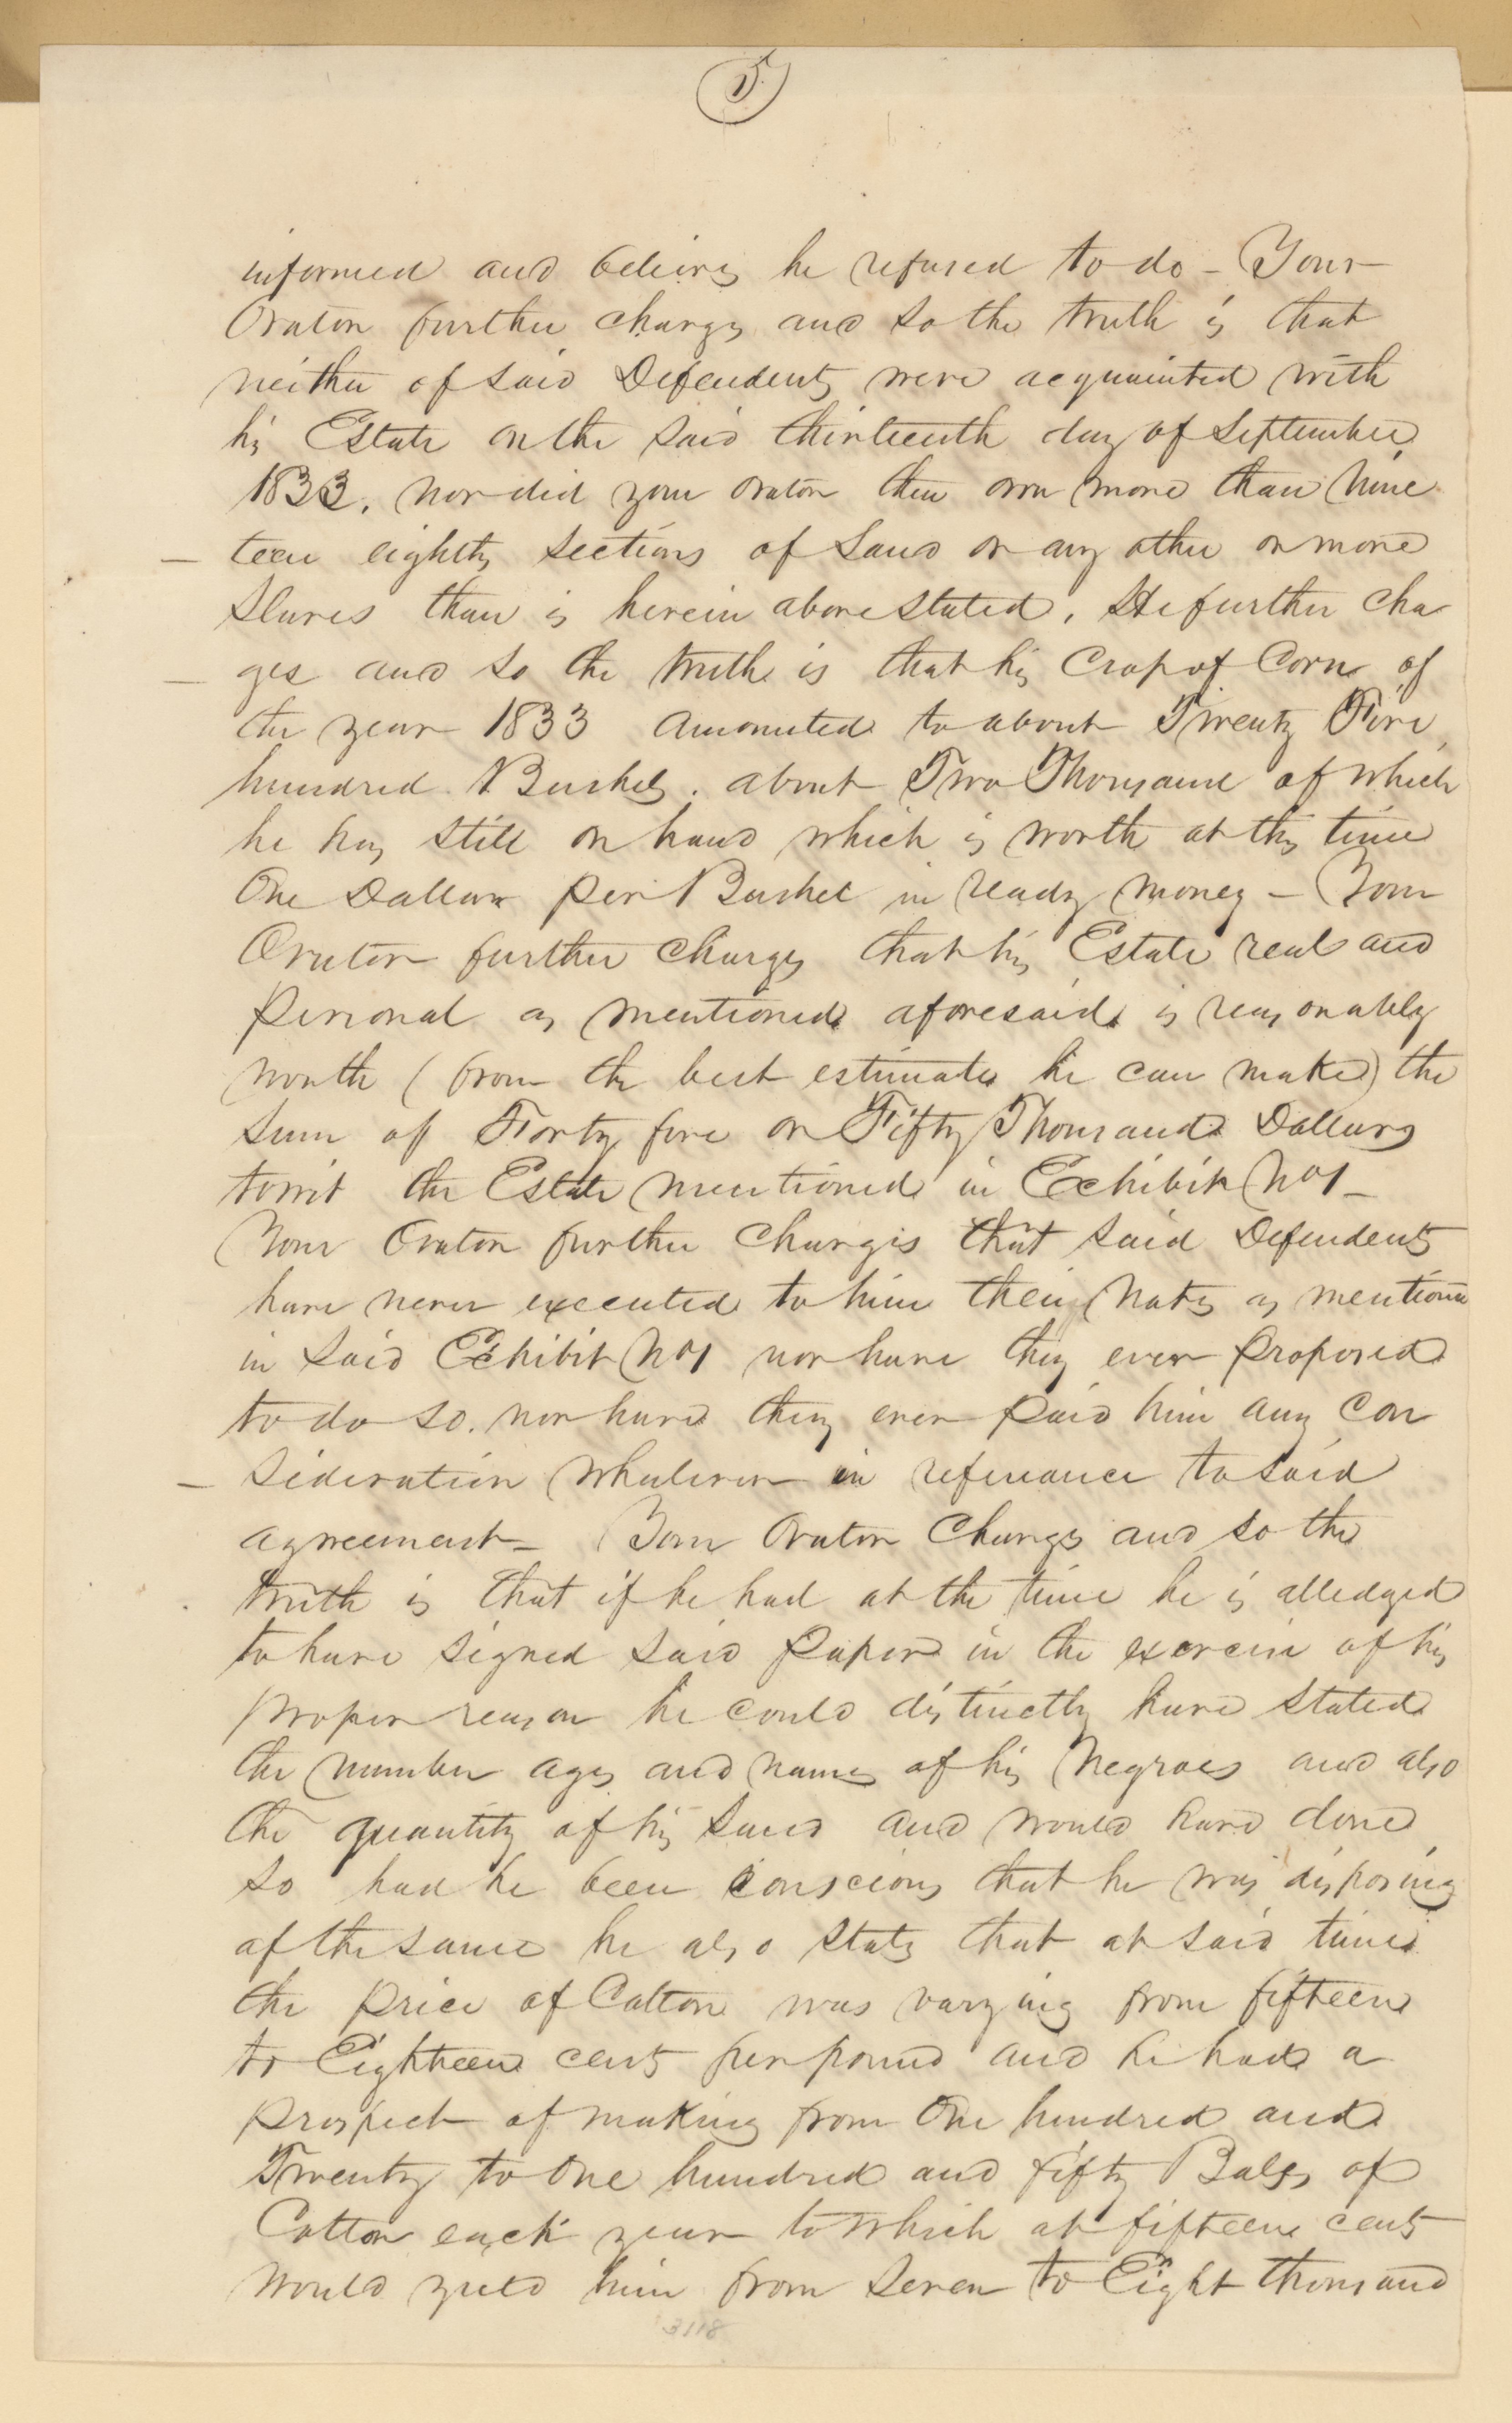 5
informed and believes he refused to do – Your
Orator further charges and so the truth is that
neither of said Defendents were acquainted with
his Estate on the said thirteenth day of September
1833. nor did your orator then own more than Nine
– teen eighths sections of Land or any other or more
Slaves than is herein above stated. He further cha
– ges and so the truth is that his Crop of Corn of
the year 1833 amounted to about Twenty Five
hundred Bushels. about Two Thousand of which
he has still on hand which is worth at this time
One Dollar per Bushel in ready money – Your
Orator further charges that his Estate real and
personal as mentioned aforesaid is reasonably
worth (from the best estimates he can make) the
sum of Forty five or Fifty Thousand Dollars
towit the Estate mentioned in Exhibit No 1 –
Your Orator further charges that said Defendents
have never executed to him their Notes as mention
in said Exhibit No 1 nor have they ever proposed
to do so. nor have they ever paid him any con
– sideration whatever in referance to said
agreement – Your Orator Charges and so the
truth is that if he had at the time he is alledged
to have signed said paper in the exercise of his
proper reason he could distinctly have stated
the number ages and names of his Negroes and also
the quantity of his Land and would have done
so had he been conscious that he was disposing
of the same he also states that at said time
the price of Cotton was varying from fifteen
to Eighteen cents per pound and he had a
prospect of making from One hundred and
Twenty to one hundred and fifty Bales of
Cotton each year to which at fifteen cents
would yield him from Seven to Eight thousand
3118